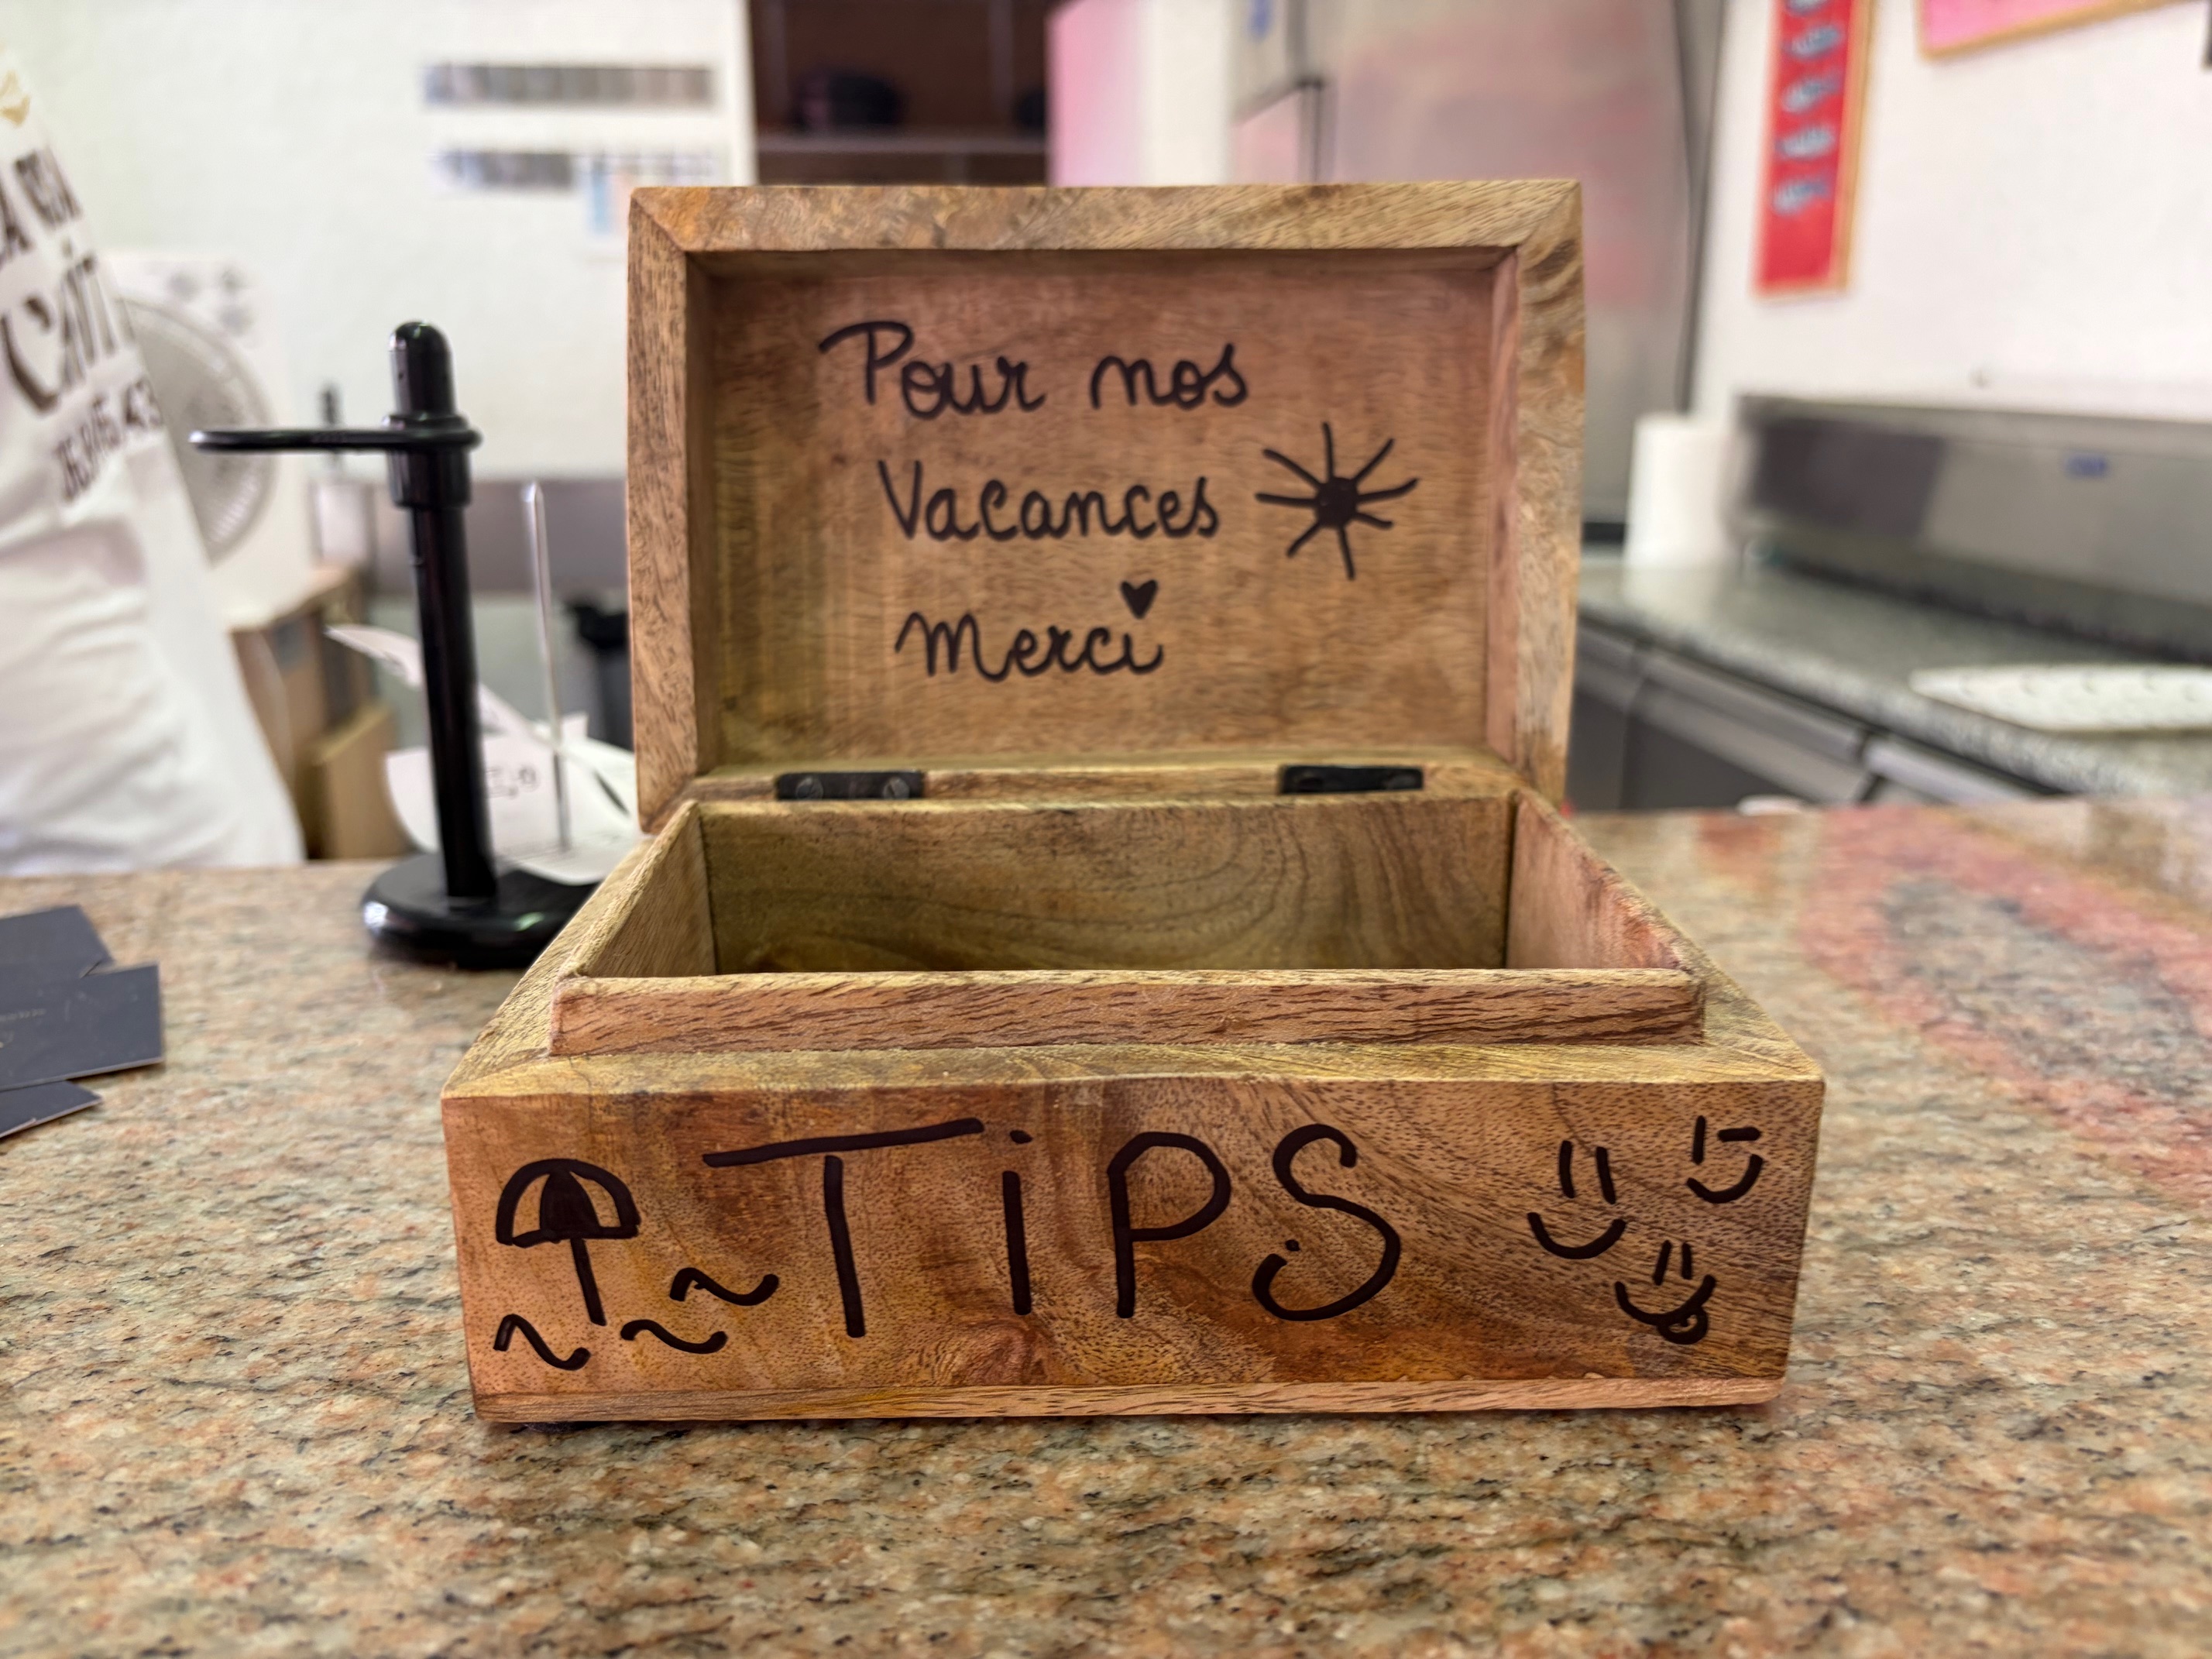 Pour nos
Vacances
Merci
TiPS